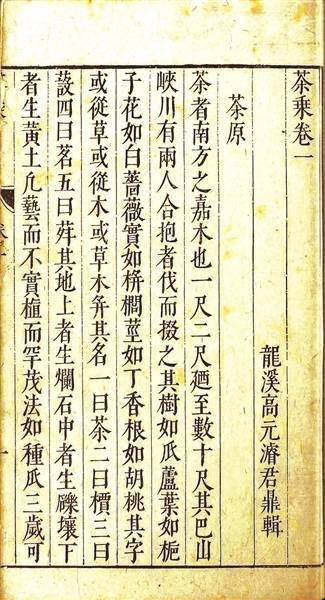 茶乘卷一
龍溪高元濬君鼎輯
茶原
茶者南方之嘉木也一尺二尺廼至數十尺其巴山
峽川有兩人合抱者伐而掇之其樹如瓜蘆葉如梔
子花如白薔薇實如栟櫚莖如丁香根如胡桃其字
或從草或從木或草木并其名一曰茶二曰價三曰
蔎四曰茗五曰荈其地上者生爛石中者生礫壤下
者生黃土凡藝而不實植而罕茂法如種瓜三歲可